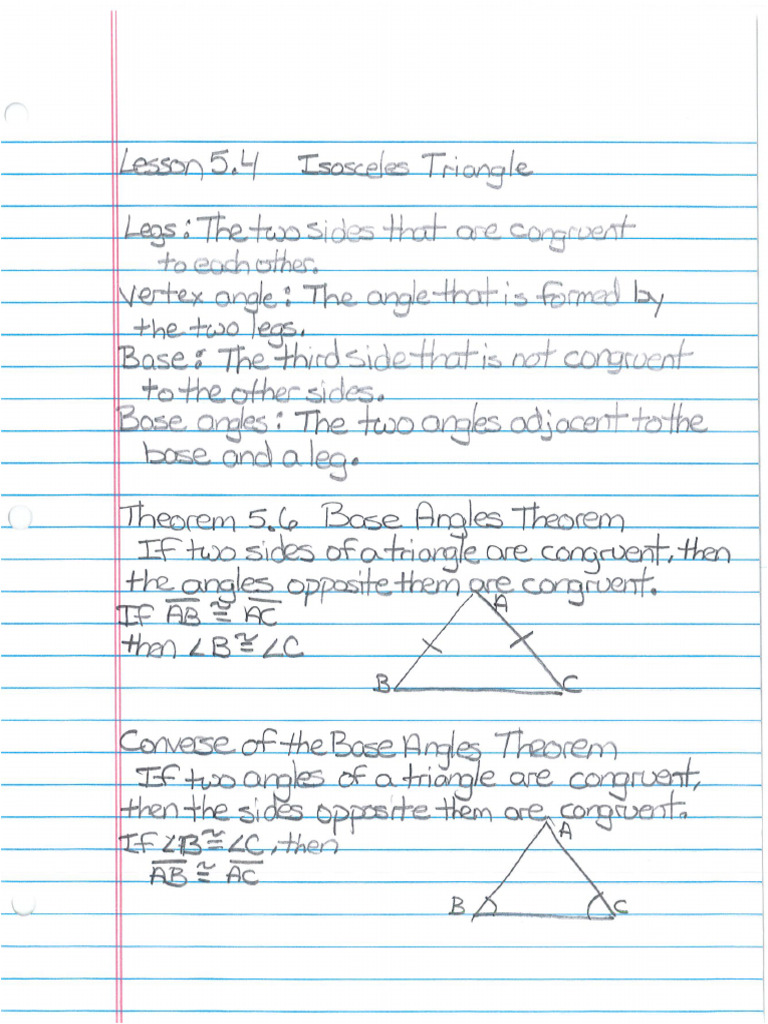 Lesson 5.4 Isosceles Triangle
Legs: The two sides that are congruent
to each other.
Vertex angle: The angle that is formed by
the two legs.
Base: The third side that is not congruent
to the other sides.
Base angles: The two angles adjacent to the
base and a leg.
Theorem 5.6 Base Angles Theorem
If two sides of a triangle are congruent, then
the angles opposite them are congruent.
A
If A̅B̅ ≅ A̅C̅
then ∠B ≅ ∠C
B C
Converse of the Base Angles Theorem
If two angles of a triangle are congruent,
then the sides opposite them are congruent.
A
If ∠B ≅ ∠C, then
A̅B̅ ≅ A̅C̅
B C